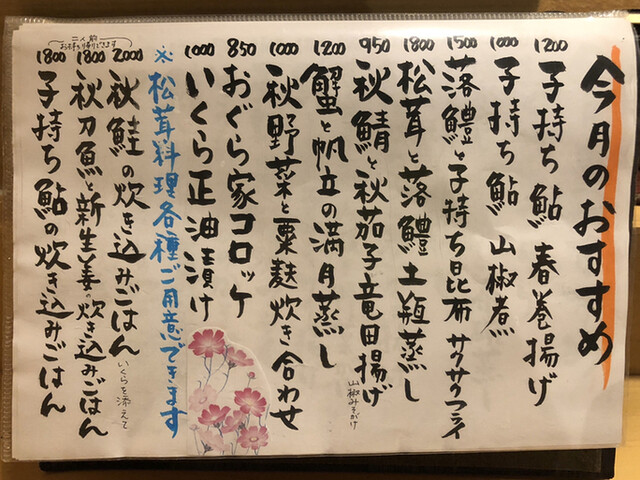 今月のおすすめ
1200
子持ち鮎 春巻揚げ
1000
子持ち鮎 山椒煮
1500
落鱧と子持ち昆布 サクサクフライ
1800
松茸と落鱧土瓶蒸し
950
秋鯖と秋茄子竜田揚げ
山椒みそがけ
1200
蟹と帆立の満月蒸し
1000
秋野菜と粟麩炊き合わせ
850
おぐら家コロッケ
1000
いくら正油漬け
※松茸料理各種ご用意できます
二人前
お持ち帰りできます
2000
秋鮭の炊き込みごはん
いくらを添えて
1800
秋刀魚と新生姜の炊き込みごはん
1800
子持ち鮎の炊き込みごはん